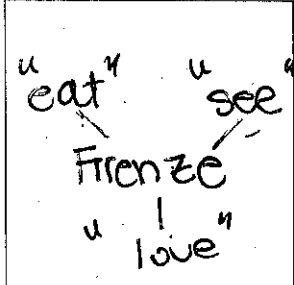 "eat" "see"
Firenze
"love"